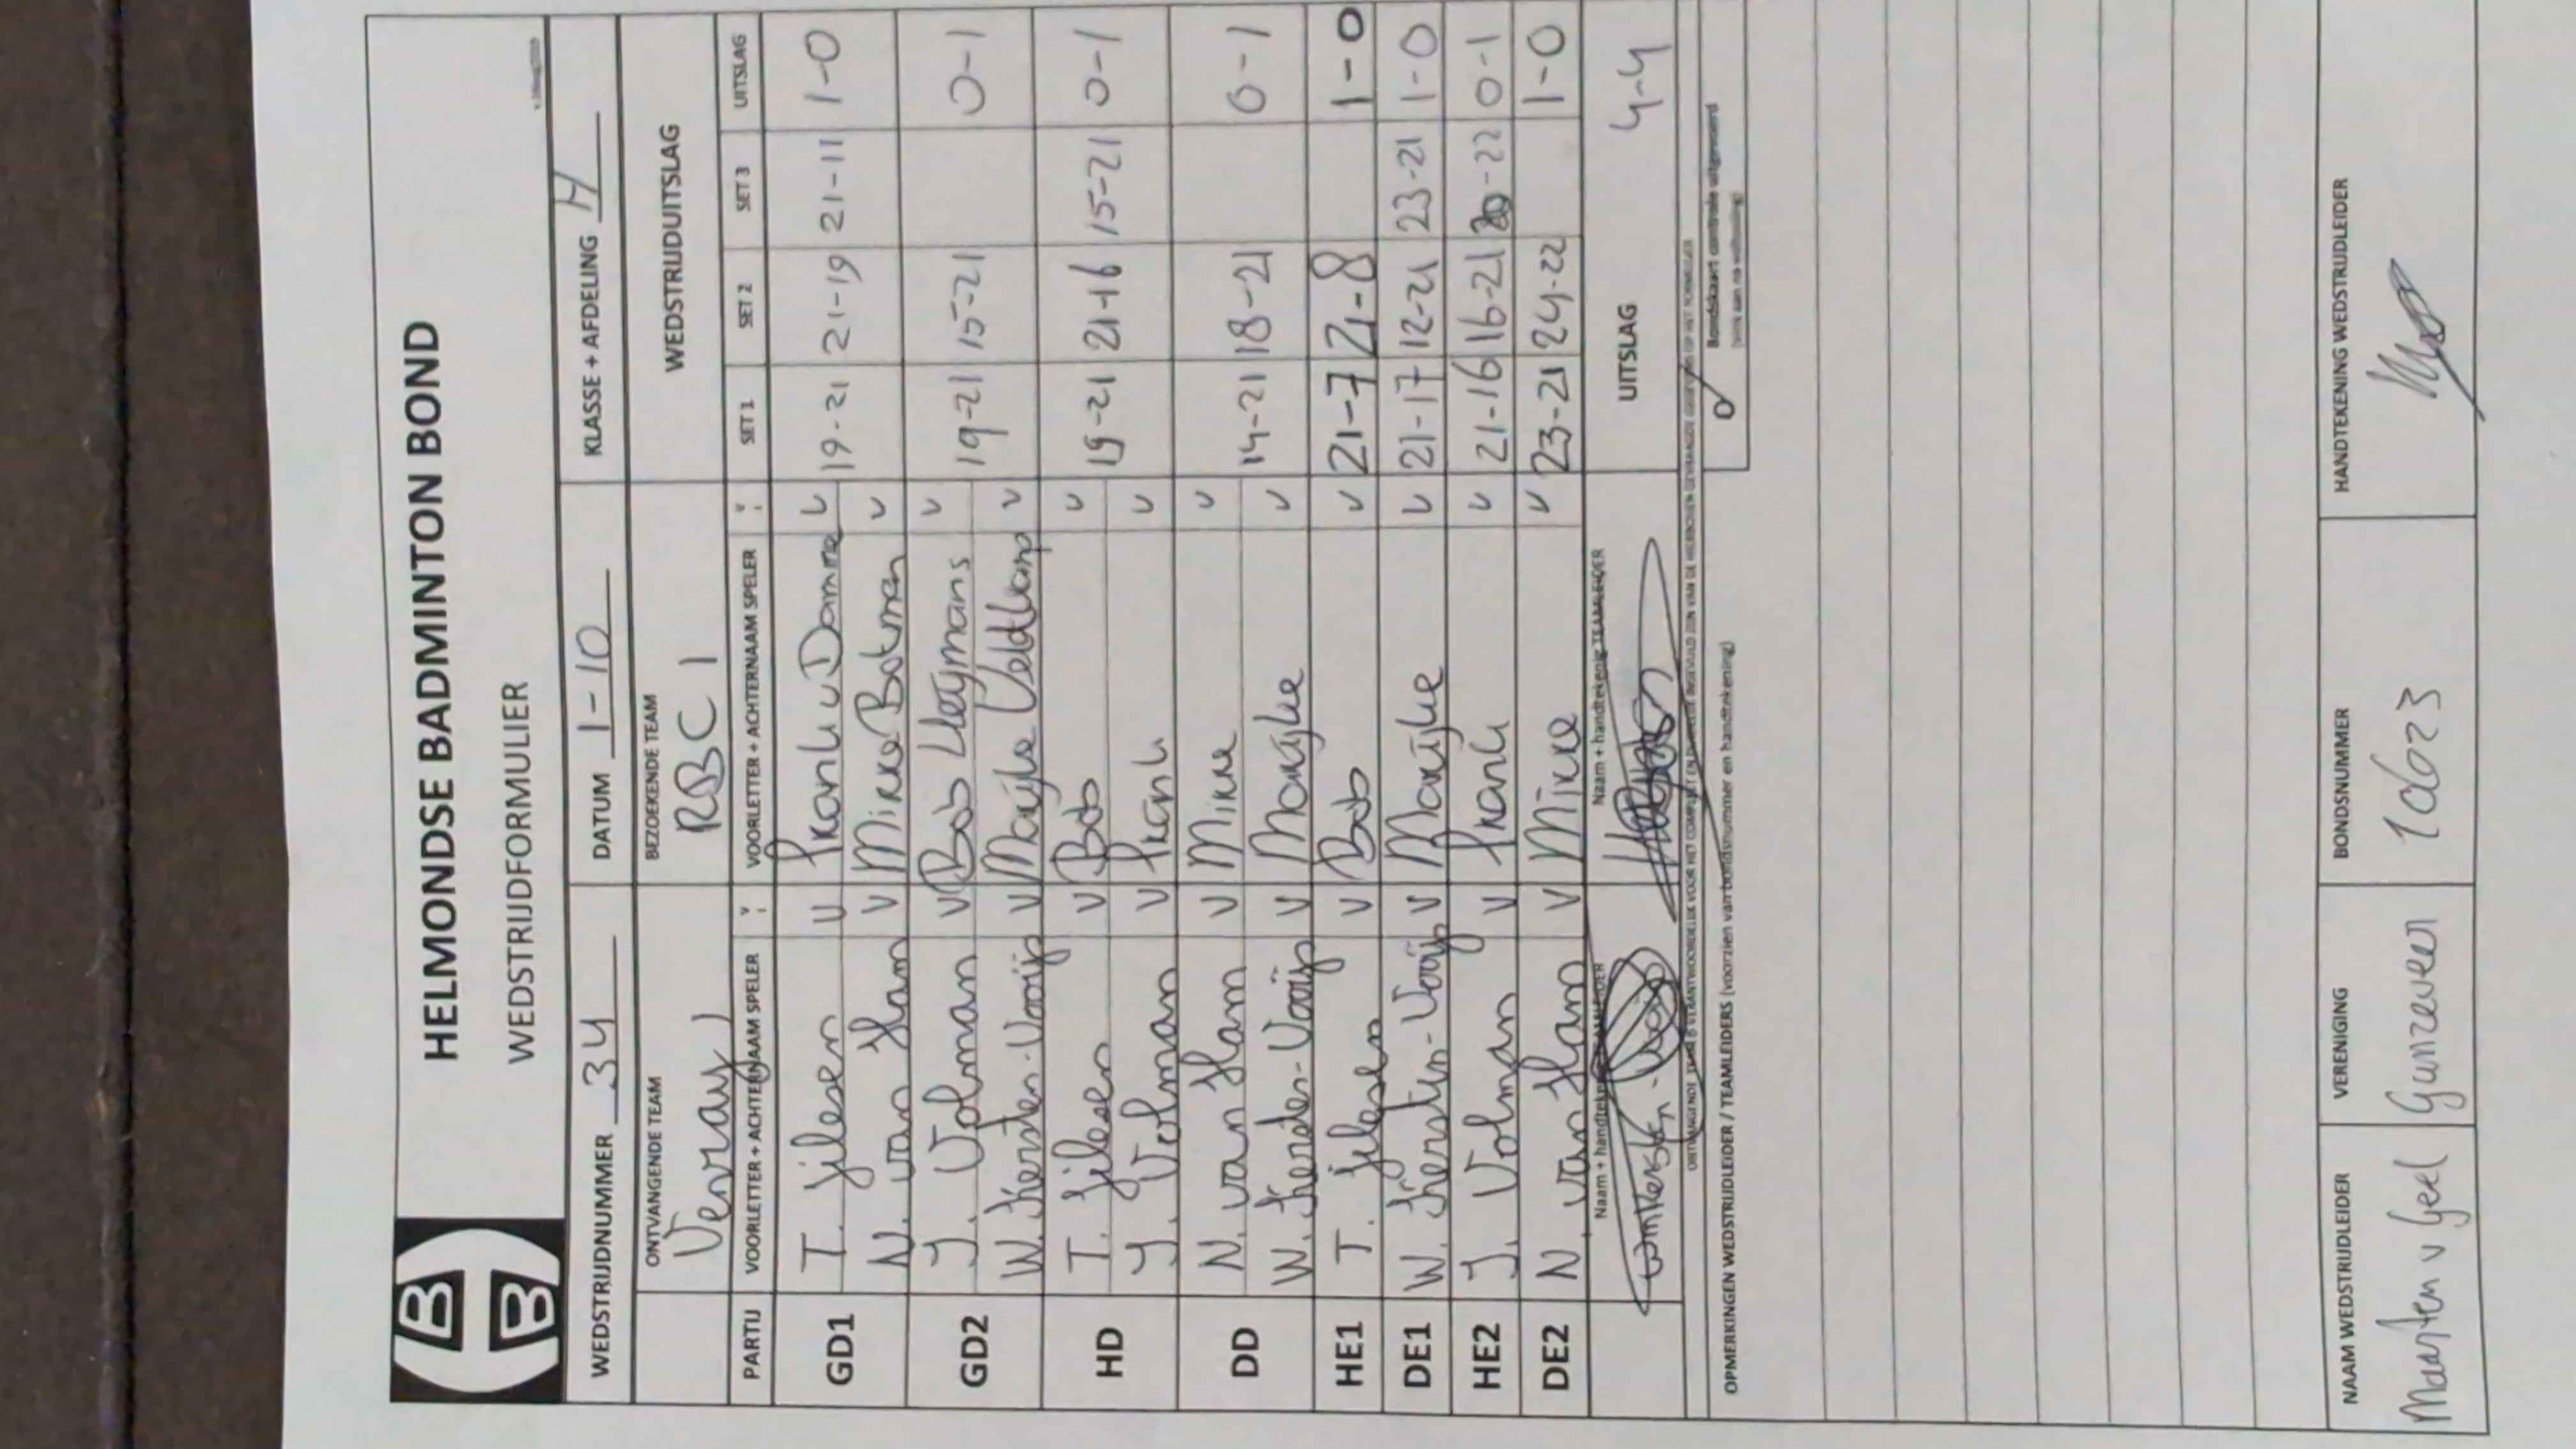 HELMONDSE BADMINTON BOND
WEDSTRIJDFORMULIER
WEDSTRIJDNUMMER 34 DATUM 1-10 KLASSE + AFDELING H
ONTVANGENDE TEAM BEZOEKENDE TEAM WEDSTRIJDUITSLAG
Venray 1 RBC 1
PARTIJ VOORLETTER + ACHTERNAAM SPELER VOORLETTER + ACHTERNAAM SPELER SET 1 SET 2 SET 3 UITSLAG
GD1 T. Jilesen V Frank v Damme V 19-21 21-19 21-11 1-0
N. van Ham V Mirre Botman V
GD2 J. Volman V Bob Heijmans V 19-21 15-21 0-1
W. Kersten-Vooijs V Marijke Veldkamp V
HD T. Jilesen V Bob V 19-21 21-16 15-21 0-1
J. Volman V Frank V
DD N. van Ham V Mirre V 14-21 18-21 0-1
W. Kersten-Vooijs V Marijke V
HE1 T. Jilesen V Bob V 21-7 21-8 1-0
DE1 W. Kersten-Vooijs V Marijke V 21-17 12-21 23-21 1-0
HE2 J. Volman V Frank V 21-16 16-21 20-22 0-1
DE2 N. van Ham V Mirre V 23-21 24-22 1-0
Naam + handtekening TEAMLEIDER Naam + handtekenig TEAMLEIDER UITSLAG 4-4
Bondskaart controle uitgevoerd
OPMERKINGEN WEDSTRIJDLEIDER / TEAMLEIDERS (voorzien van bondsnummer en handtekening)
NAAM WEDSTRIJDLEIDER VERENIGING BONDSNUMMER HANDTEKENING WEDSTRIJDLEIDER
Maarten v Geel